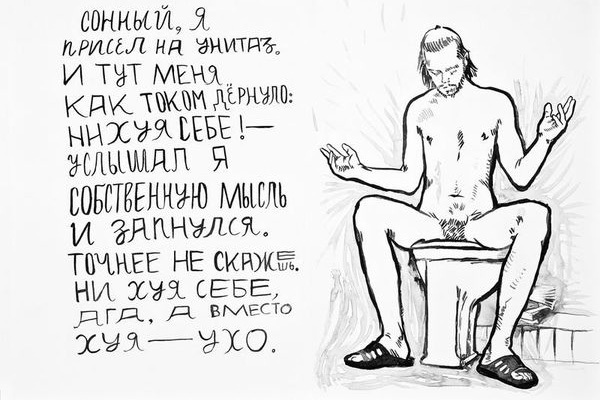 СОННЫЙ, Я
ПРИСЕЛ НА УНИТАЗ.
И ТУТ МЕНЯ
КАК ТОКОМ ДЁРНУЛО:
НИ ХУЯ СЕБЕ! —
УСЛЫШАЛ Я
СОБСТВЕННУЮ МЫСЛЬ
И ЗАПНУЛСЯ.
ТОЧНЕЕ НЕ СКАЖЕШЬ.
НИ ХУЯ СЕБЕ,
АГА, А ВМЕСТО
ХУЯ — УХО.